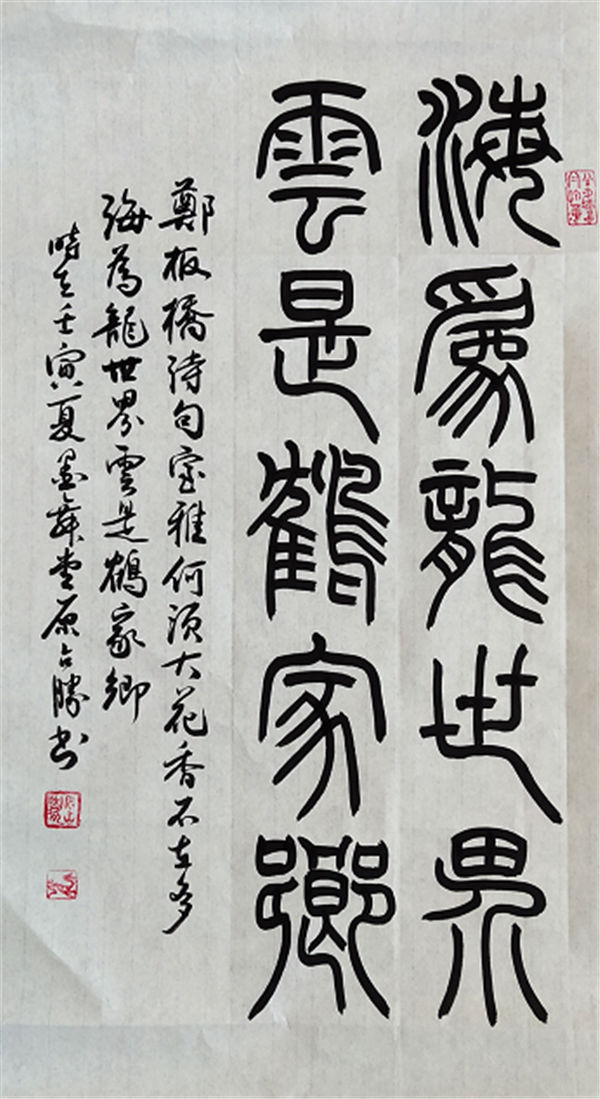 海為龍世界
雲是鶴家鄉
鄭板橋詩句室雅何須大花香不在多
海為龍世界雲是鶴家鄉
時在壬寅夏墨舞堂原占勝書